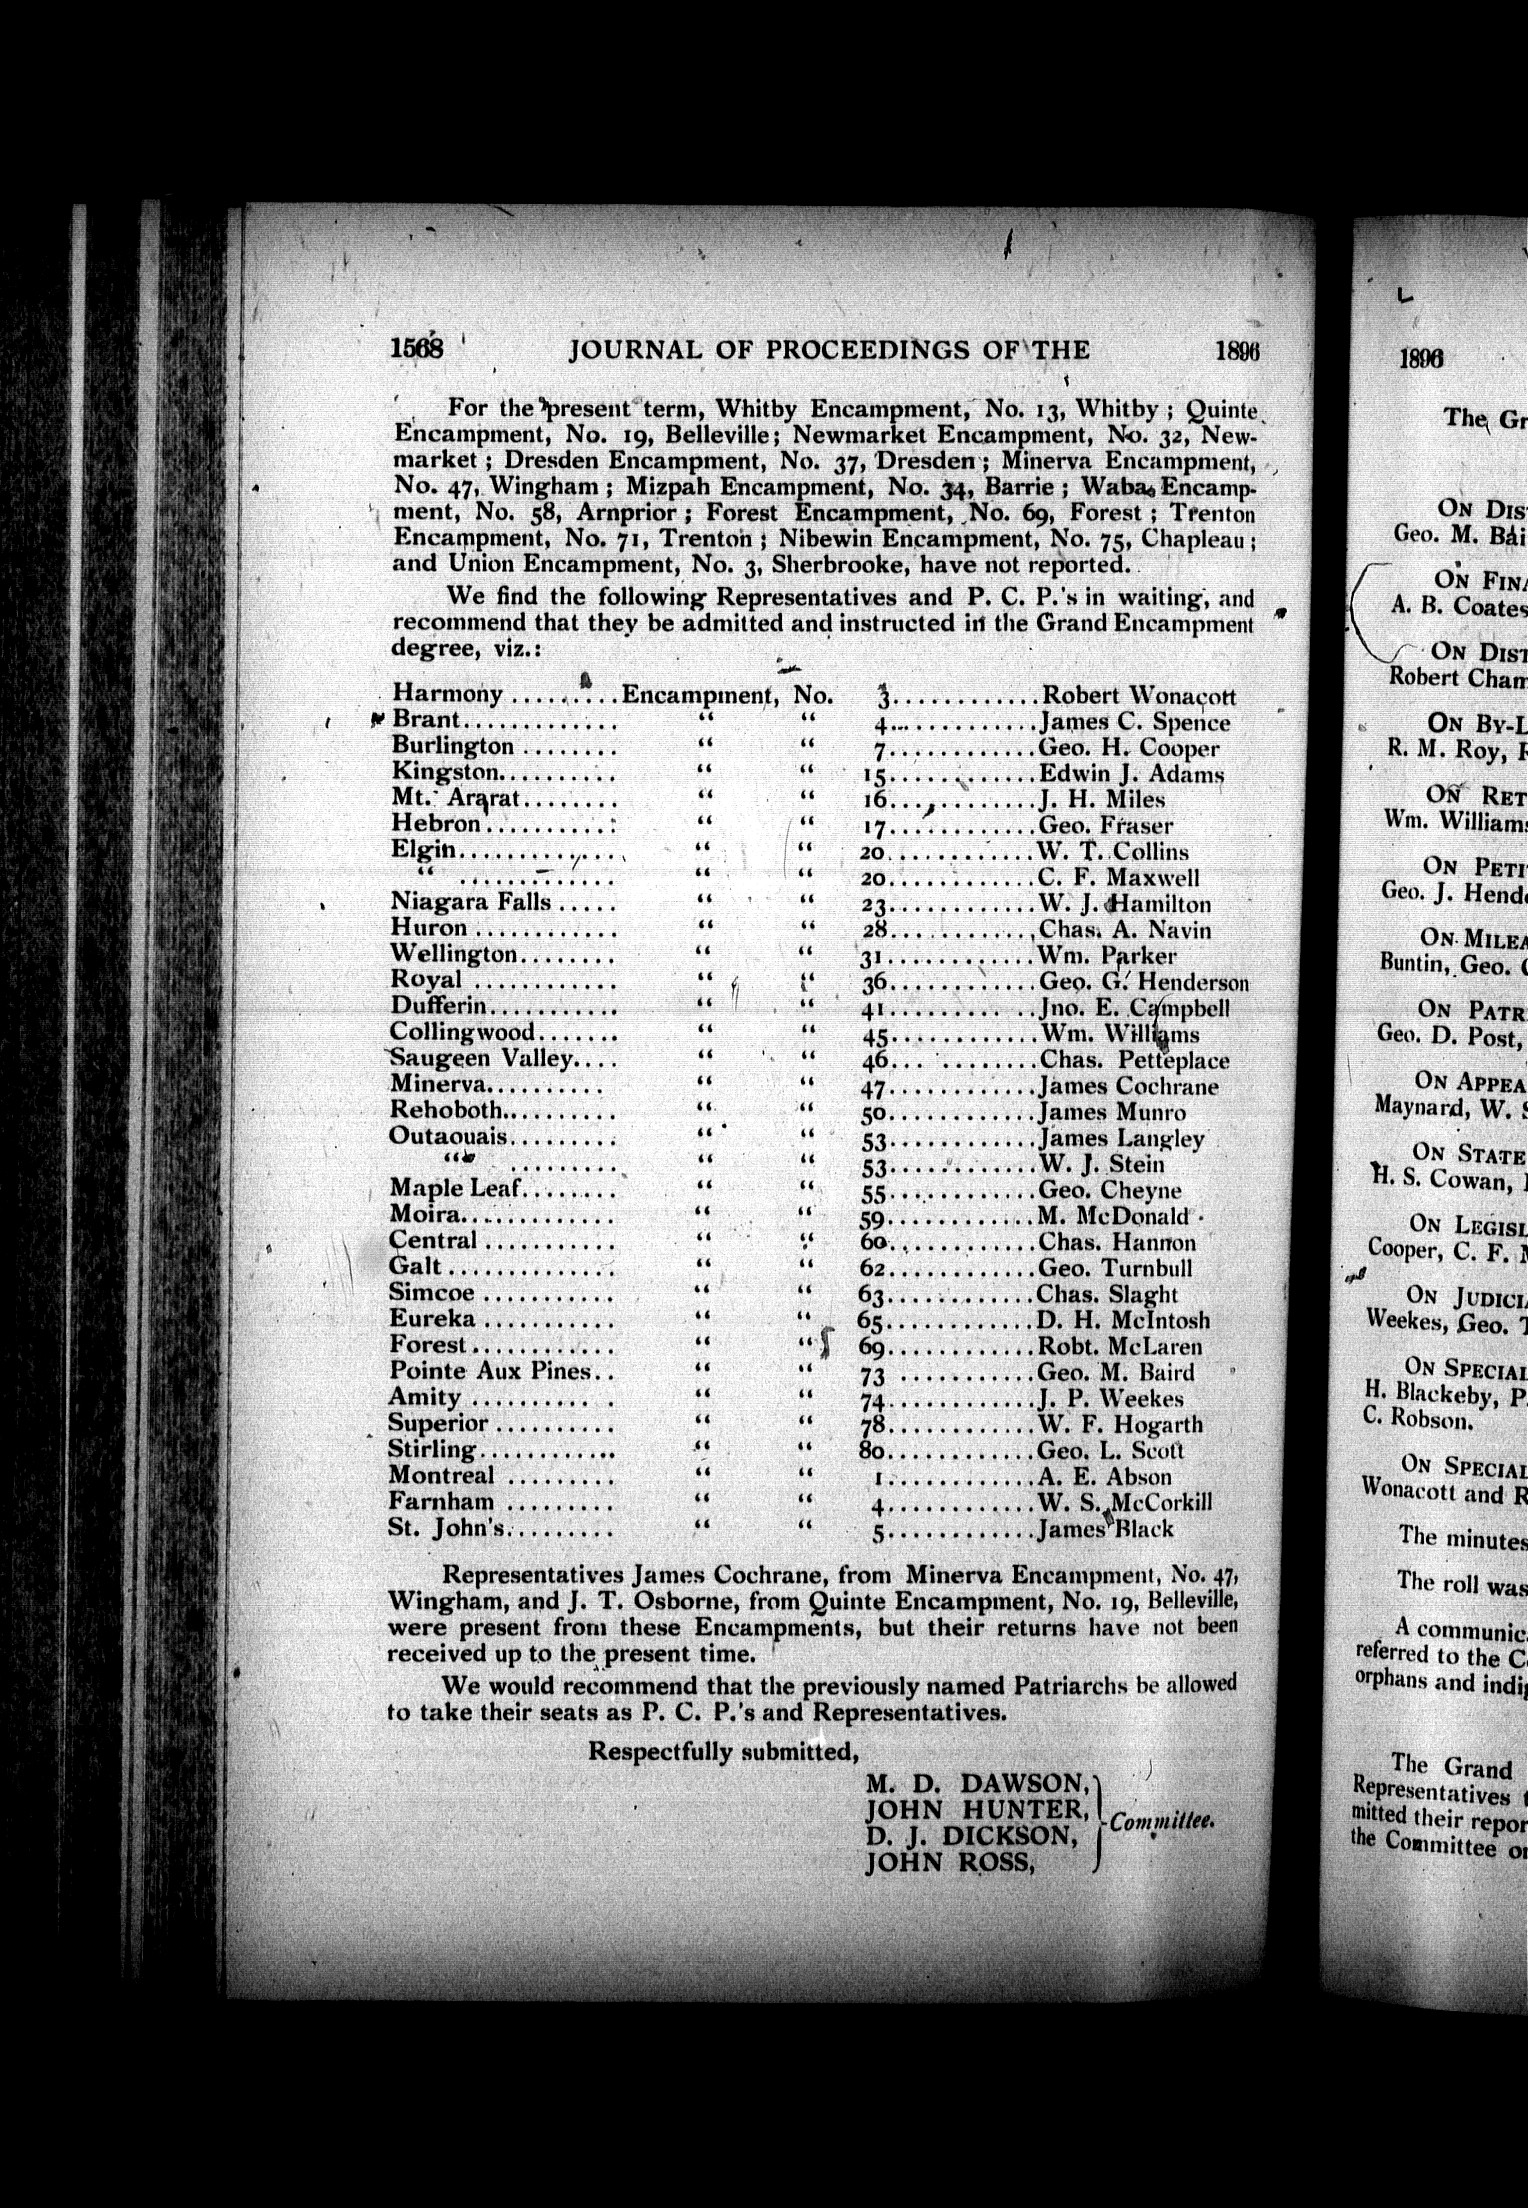 1568 JOURNAL OF PROCEEDINGS OF THE 1896
For the present term, Whitby Encampment, No. 13, Whitby ; Quinte
Encampment, No. 19, Belleville; Newmarket Encampment, No. 32, New-
market ; Dresden Encampment, No. 37, Dresden ; Minerva Encampment,
No. 47, Wingham ; Mizpah Encampment, No. 34, Barrie ; Waba Encamp-
ment, No. 58, Arnprior ; Forest Encampment, No. 69, Forest ; Trenton
Encampment, No. 71, Trenton ; Nibewin Encampment, No. 75, Chapleau ;
and Union Encampment, No. 3, Sherbrooke, have not reported.
We find the following Representatives and P. C. P.'s in waiting, and
recommend that they be admitted and instructed in the Grand Encampment
degree, viz.:
Harmony .........Encampment, No. 3............Robert Wonacott
Brant............ " " 4............James C. Spence
Burlington ........ " " 7............Geo. H. Cooper
Kingston.......... " " 15............Edwin J. Adams
Mt. Ararat........ " " 16............J. H. Miles
Hebron........... " " 17............Geo. Fraser
Elgin............. " " 20............W. T. Collins
" ............. " " 20............C. F. Maxwell
Niagara Falls ..... " " 23............W. J. Hamilton
Huron ............ " " 28............Chas. A. Navin
Wellington........ " " 31............Wm. Parker
Royal ............ " " 36............Geo. G. Henderson
Dufferin........... " " 41............Jno. E. Campbell
Collingwood....... " " 45............Wm. Williams
Saugeen Valley.... " " 46............Chas. Petteplace
Minerva.......... " " 47............James Cochrane
Rehoboth.......... " " 50............James Munro
Outaouais......... " " 53............James Langley
" ......... " " 53............W. J. Stein
Maple Leaf........ " " 55............Geo. Cheyne
Moira............. " " 59............M. McDonald
Central ........... " " 60............Chas. Hannon
Galt .............. " " 62............Geo. Turnbull
Simcoe ........... " " 63............Chas. Slaght
Eureka ........... " " 65............D. H. McIntosh
Forest............ " " 69............Robt. McLaren
Pointe Aux Pines.. " " 73 ...........Geo. M. Baird
Amity ............ " " 74............J. P. Weekes
Superior .......... " " 78............W. F. Hogarth
Stirling............ " " 80............Geo. L. Scott
Montreal ......... " " 1............A. E. Abson
Farnham ......... " " 4............W. S. McCorkill
St. John's......... " " 5............James Black
Representatives James Cochrane, from Minerva Encampment, No. 47,
Wingham, and J. T. Osborne, from Quinte Encampment, No. 19, Belleville,
were present from these Encampments, but their returns have not been
received up to the present time.
We would recommend that the previously named Patriarchs be allowed
to take their seats as P. C. P.'s and Representatives.
Respectfully submitted,
M. D. DAWSON,
JOHN HUNTER,
D. J. DICKSON,
JOHN ROSS,
Committee.
1896
The Gr
ON DIS
Geo. M. Bai
ON FINA
A. B. Coates
ON DIST
Robert Cham
ON BY-L
R. M. Roy,
ON RET
Wm. Williams
ON PETI
Geo. J. Hende
ON MILEA
Buntin, Geo.
ON PATR
Geo. D. Post,
ON APPEA
Maynard, W.
ON STATE
H. S. Cowan,
ON LEGISL
Cooper, C. F.
ON JUDICI
Weekes, Geo.
ON SPECIAL
H. Blackeby, P.
C. Robson.
ON SPECIAL
Wonacott and R
The minutes
The roll was
A communic
referred to the C
orphans and indi
The Grand
Representatives
mitted their repor
the Committee o